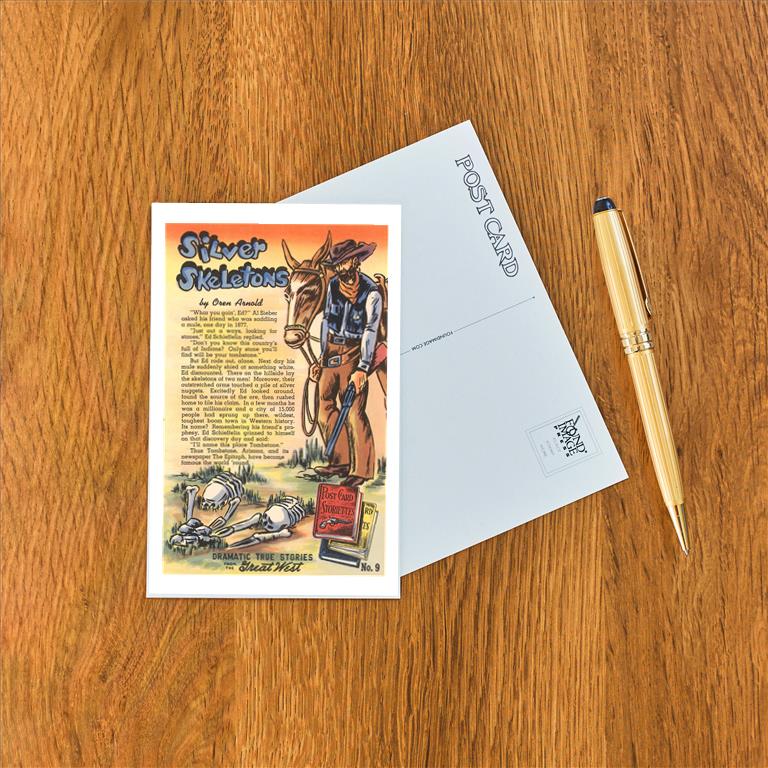 Silver
Skeletons
by Oren Arnold
"Whar you goin', Ed?" Al Sieber
asked his friend who was saddling
a mule, one day in 1877.
"Just out a ways, looking for
stones," Ed Schieffelin replied.
"Don't you know this country's
full of Indians? Only stone you'll
find will be your tombstone."
But Ed rode out, alone. Next day his
mule suddenly shied at something white.
Ed dismounted. There on the hillside lay
the skeletons of two men! Moreover, their
outstretched arms touched a pile of silver
nuggets. Excitedly Ed looked around,
found the source of the ore, then rushed
home to file his claim. In a few months he
was a millionaire and a city of 15,000
people had sprung up there, wildest,
toughest boom town in Western history.
Its name? Remembering his friend's pro-
phesy, Ed Schieffelin grinned to himself
on that discovery day and said:
"I'll name this place Tombstone."
Thus Tombstone, Arizona, and its
newspaper The Epitaph, have become
famous the world 'round.
POST CARD
STORIETTES
DRAMATIC TRUE STORIES
FROM THE Great West
No. 9
POST CARD
FOUNDIMAGE.COM
FOUND
IMAGE
PRESS